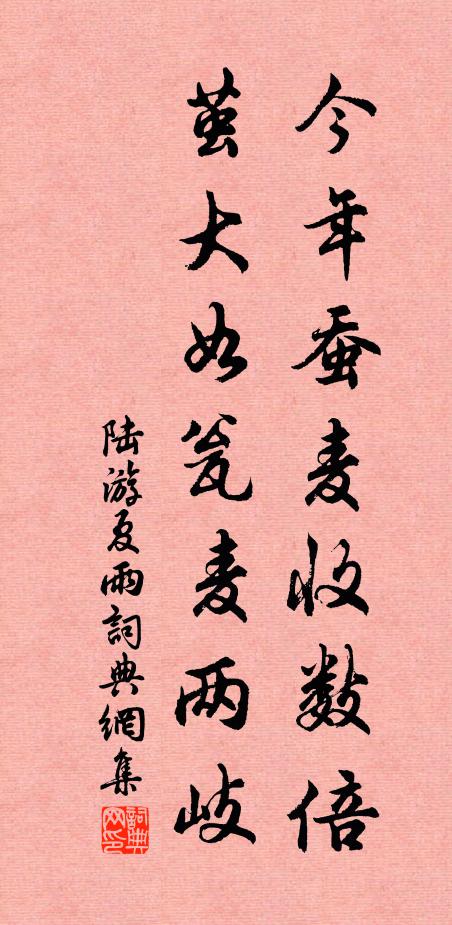 今年蚕麦收数倍
茧大如瓮麦两岐
陆游夏雨詞典網集
詞典网印